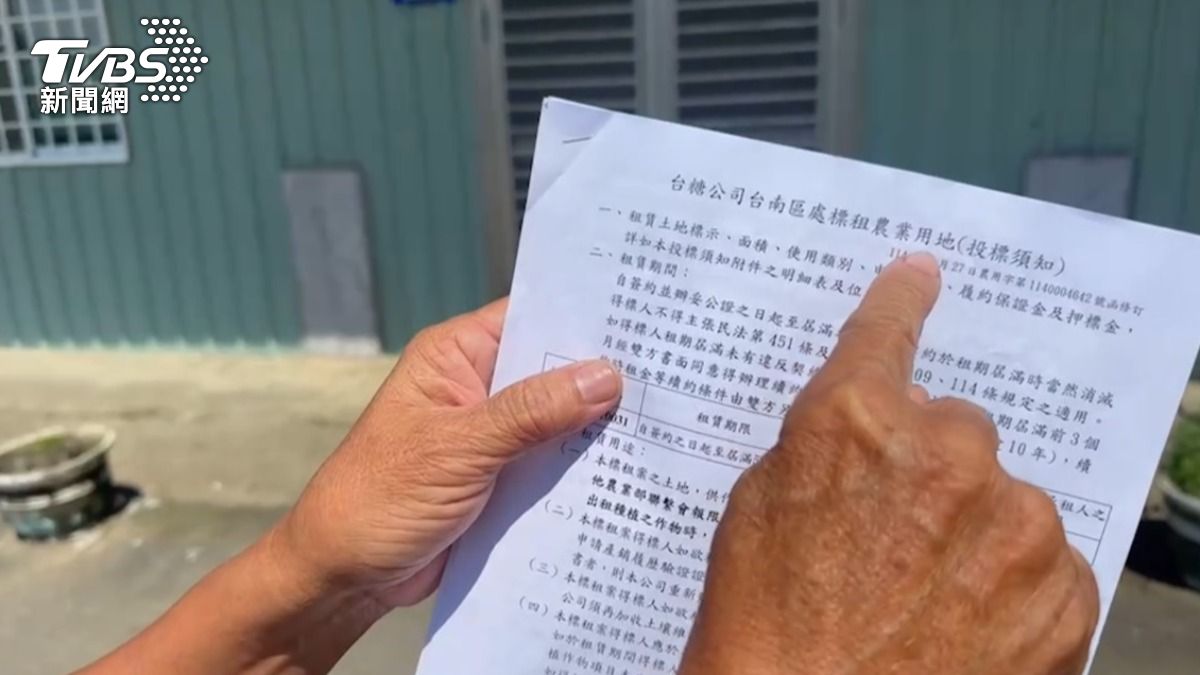 TVBS
新聞網
台糖公司台南區處標租農業用地(投標須知)
114 月27日農用字第1140004642號函修訂
一、租賃土地標示、面積、使用類別、 、履約保證金及押標金，
詳如本投標須知附件之明細表及位
二、租賃期間：
自簽約並辦妥公證之日起至屆滿 約於租期屆滿時當然消滅
得標人不得主張民法第451條及 09、114條規定之適用。
如得標人租期屆滿未有違反契約 期屆滿前3個
月經雙方書面同意得辦理續約 10年)，續
時租金等續約條件由雙方另
租賃期限 租人之
自簽約之日起至屆滿
租賃用途：
(一)本標租案之土地，供作
他農業部聯繫會報限
出租種植之作物時，
(二)本標租案得標人如欲
申請產銷履歷驗證
書者，則本公司重新
(三)本標租案得標人如欲
公司須再加收土壤維
(四)本標租案得標人應於
如於租賃期間得標人
植作物項目